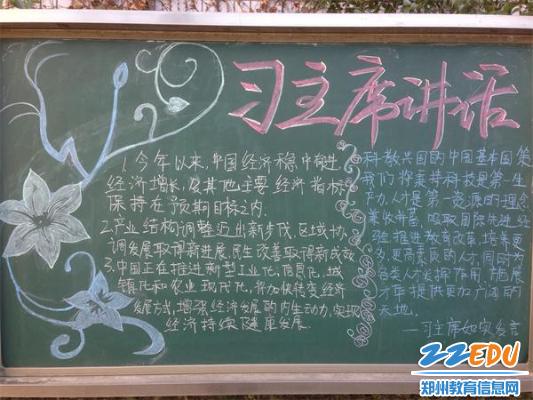 习主席讲话
1.今年以来,中国经济稳中有进
经济增长,及其他主要经济指标
保持在预期目标之内.
2.产业结构调整迈出新步伐,区域协
调发展取得新进展,民生改善取得新成效
3.中国正在推进新型工业化,信息化,城
镇化和农业现代化,将加快转变经济
发展方式,增强经济发展的内生动力,实现
经济持续健康发展.
科教兴国的中国基本国策
我们将秉持科技是第一生
产力,人才是第一资源的理念
兼收并蓄,吸取国际先进经
验,推进教育改革,培养更
多,更高素质的人才,同时为
各类人才发挥作用,施展
才华提供更加广阔的
天地.
——习主席如实发言
ZZEDU
郑州教育信息网